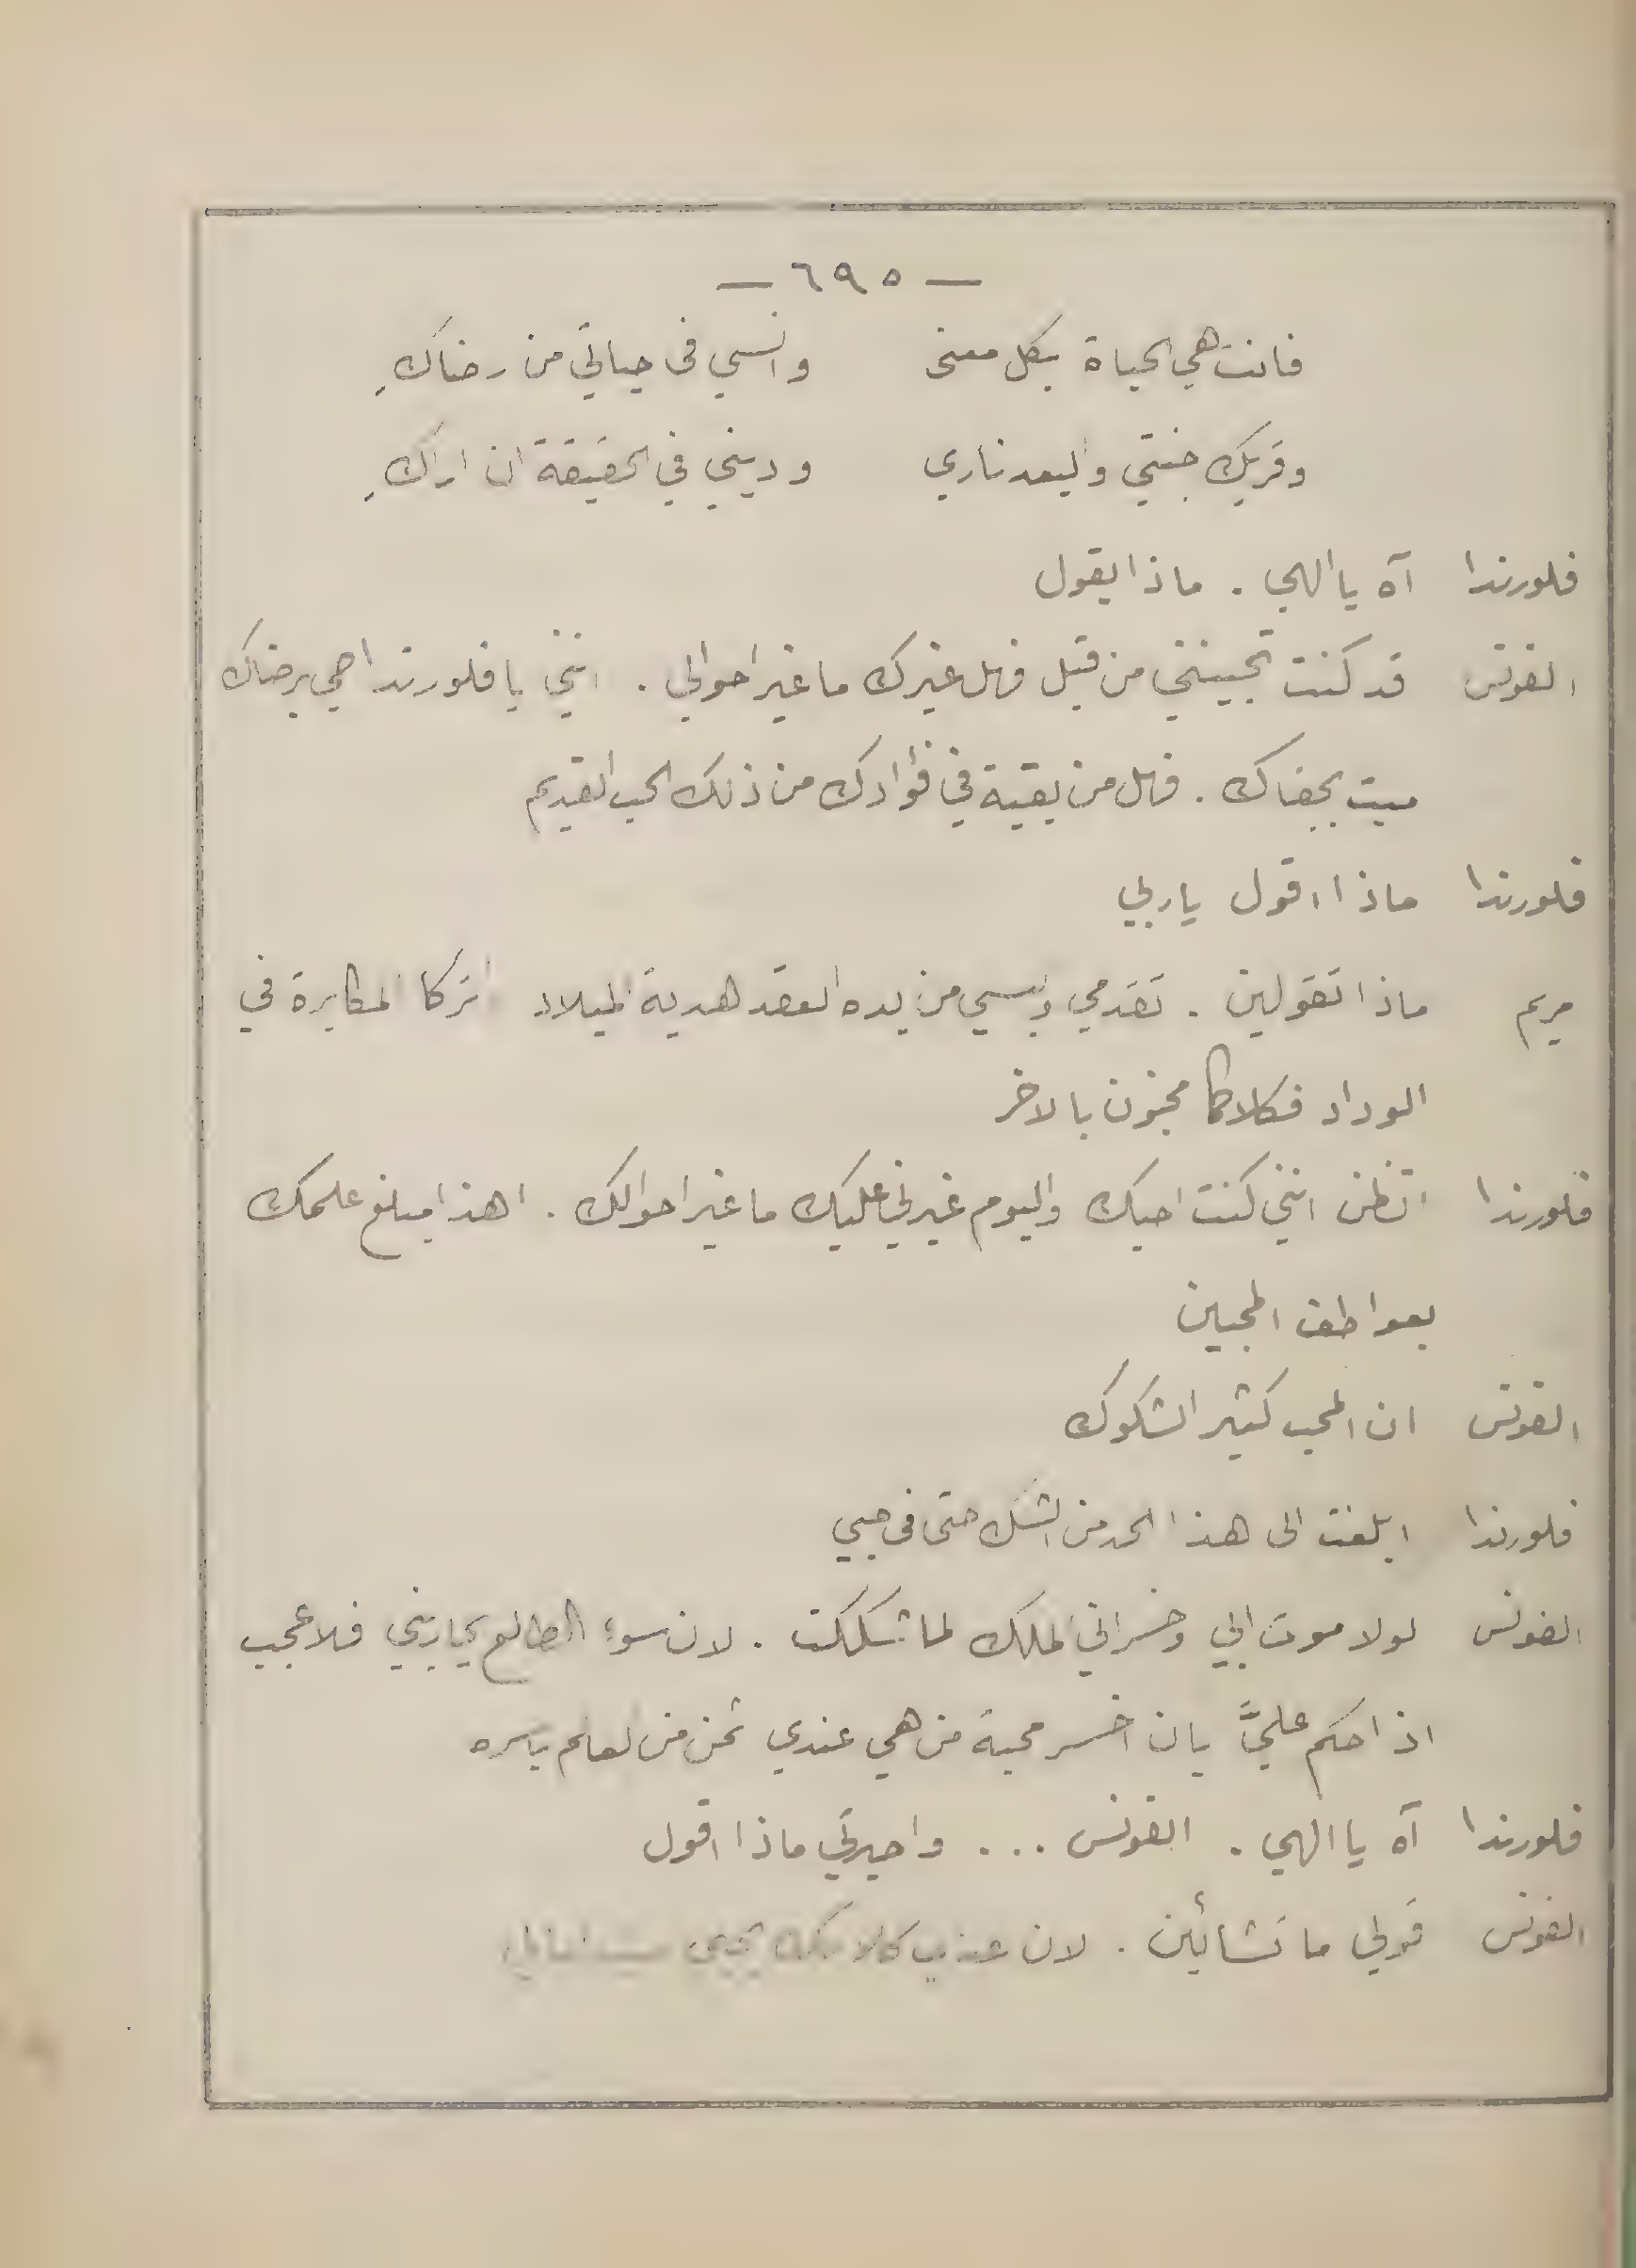 — ٦٩٥ —
فانت هي الحياة بكل معنى وانسي في حياتي من رضاكِ
وقربك جنتي والبعد ناري وديني في الحقيقة ان اراكِ
فلورندا آه يا الهي . ماذا يقول
الفونس قد كنت تحبينني من قبل فهل غيرك ما غير احوالي . انني يا فلورندا حي برضاك
ميت بجفاك . فهل من بقية في فؤادك من ذلك الحب القديم
فلورندا ماذا اقول ياربي
مريم ماذا تقولين . تقدمي والبسي من يده العقد هدية الميلاد اتركا المكابرة في
الوداد فكلاكما مجنون بالاخر
فلورندا اتظن انني كنت احبك واليوم غيرني عليك ما غير احوالك . اهذا مبلغ علمك
بعواطف المحبين
الفونس ان المحب كثير الشكوك
فلورندا ابلغت الى هذا الحد من الشك حتى في حبي
الفونس لولا موت ابي وخسراني الملك لما شككت . لان سوء الطالع يحاربني فلا عجب
اذا حكم عليَّ بان اخسر محبة من هي عندي اثمن من العالم باسره
فلورندا آه يا الهي . الفونس ... واحيرتي ماذا اقول
الفونس قولي ما تشائين . لان عذب كلامك يحيي